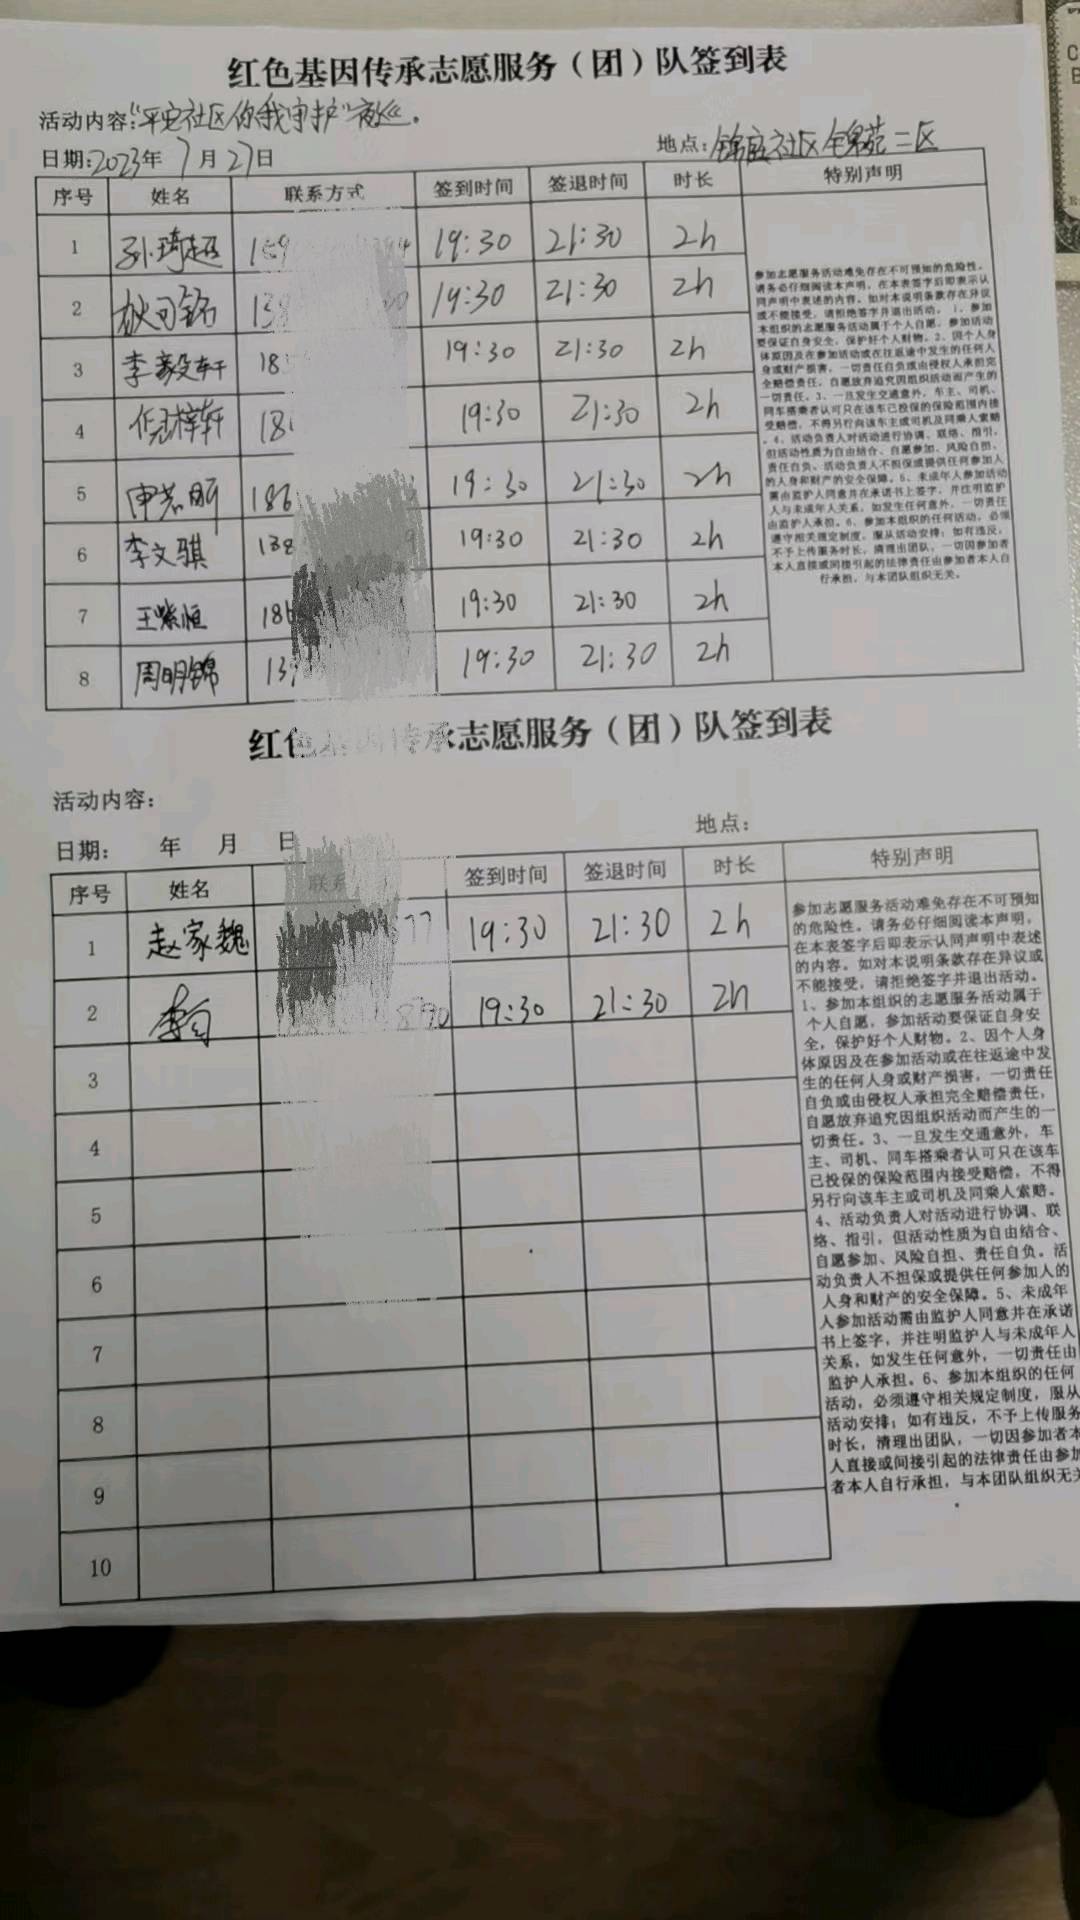 红色基因传承志愿服务（团）队签到表
活动内容:"平安社区你我守护"夜巡.
日期:2023年7月27日
地点:锦庭社区金锦苑二区
序号 姓名 联系方式 签到时间 签退时间 时长 特别声明
1 孙琦超 19:30 21:30 2h
2 19:30 21:30 2h
3 李毅轩 19:30 21:30 2h
4 任冠梓轩 19:30 21:30 2h
5 19:30 21:30 2h
6 李文骐 19:30 21:30 2h
7 王紫恒 19:30 21:30 2h
8 周明锦 19:30 21:30 2h
参加志愿服务活动难免存在不可预知的危险性。
请务必仔细阅读本声明，在本表签字后即表示认
同声明中表述的内容。如对本说明条款存在异议
或不能接受，请拒绝签字并退出活动。 1、参加
本组织的志愿服务活动属于个人自愿，参加活动
要保证自身安全，保护好个人财物。2、因个人身
体原因及在参加活动或在往返途中发生的任何人
身或财产损害，一切责任自负或由侵权人承担完
全赔偿责任，自愿放弃追究因组织活动而产生的
一切责任。3、一旦发生交通意外，车主、司机、
同车搭乘者认可只在该车已投保的保险范围内接
受赔偿，不得另行向该车主或司机及同乘人索赔
。4、活动负责人对活动进行协调、联络、指引，
但活动性质为自由结合、自愿参加、风险自担、
责任自负。活动负责人不担保或提供任何参加人
的人身和财产的安全保障。5、未成年人参加活动
需由监护人同意并在承诺书上签字，并注明监护
人与未成年人关系，如发生任何意外，一切责任
由监护人承担。6、参加本组织的任何活动，必须
遵守相关规定制度，服从活动安排；如有违反，
不予上传服务时长，清理出团队，一切因参加者
本人直接或间接引起的法律责任由参加者本人自
行承担，与本团队组织无关。
红色基因传承志愿服务（团）队签到表
活动内容：
日期： 年 月 日
地点：
序号 姓名 联系 签到时间 签退时间 时长 特别声明
1 赵家魏 77 19:30 21:30 2h
2 19:30 21:30 2h
3
4
5
6
7
8
9
10
参加志愿服务活动难免存在不可预知
的危险性。请务必仔细阅读本声明，
在本表签字后即表示认同声明中表述
的内容。如对本说明条款存在异议或
不能接受，请拒绝签字并退出活动。
1、参加本组织的志愿服务活动属于
个人自愿，参加活动要保证自身安
全，保护好个人财物。2、因个人身
体原因及在参加活动或在往返途中发
生的任何人身或财产损害，一切责任
自负或由侵权人承担完全赔偿责任，
自愿放弃追究因组织活动而产生的一
切责任。3、一旦发生交通意外，车
主、司机、同车搭乘者认可只在该车
已投保的保险范围内接受赔偿，不得
另行向该车主或司机及同乘人索赔。
4、活动负责人对活动进行协调、联
络、指引，但活动性质为自由结合、
自愿参加、风险自担、责任自负。活
动负责人不担保或提供任何参加人的
人身和财产的安全保障。5、未成年
人参加活动需由监护人同意并在承诺
书上签字，并注明监护人与未成年人
关系，如发生任何意外，一切责任由
监护人承担。6、参加本组织的任何
活动，必须遵守相关规定制度，服从
活动安排；如有违反，不予上传服务
时长，清理出团队，一切因参加者本
人直接或间接引起的法律责任由参加
者本人自行承担，与本团队组织无关